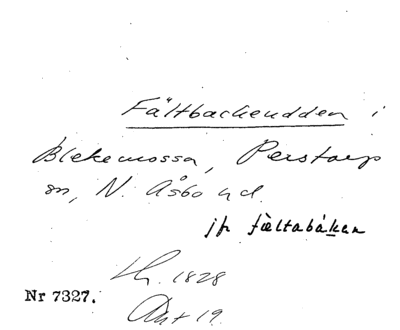 Fältbackeudden i
Blekemossa, Perstorp
sn, N. Åsbo hd.
jfr fæltabåkan
Lh. 1828
Nr 7327.
Akt 19.